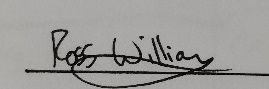 Ross William